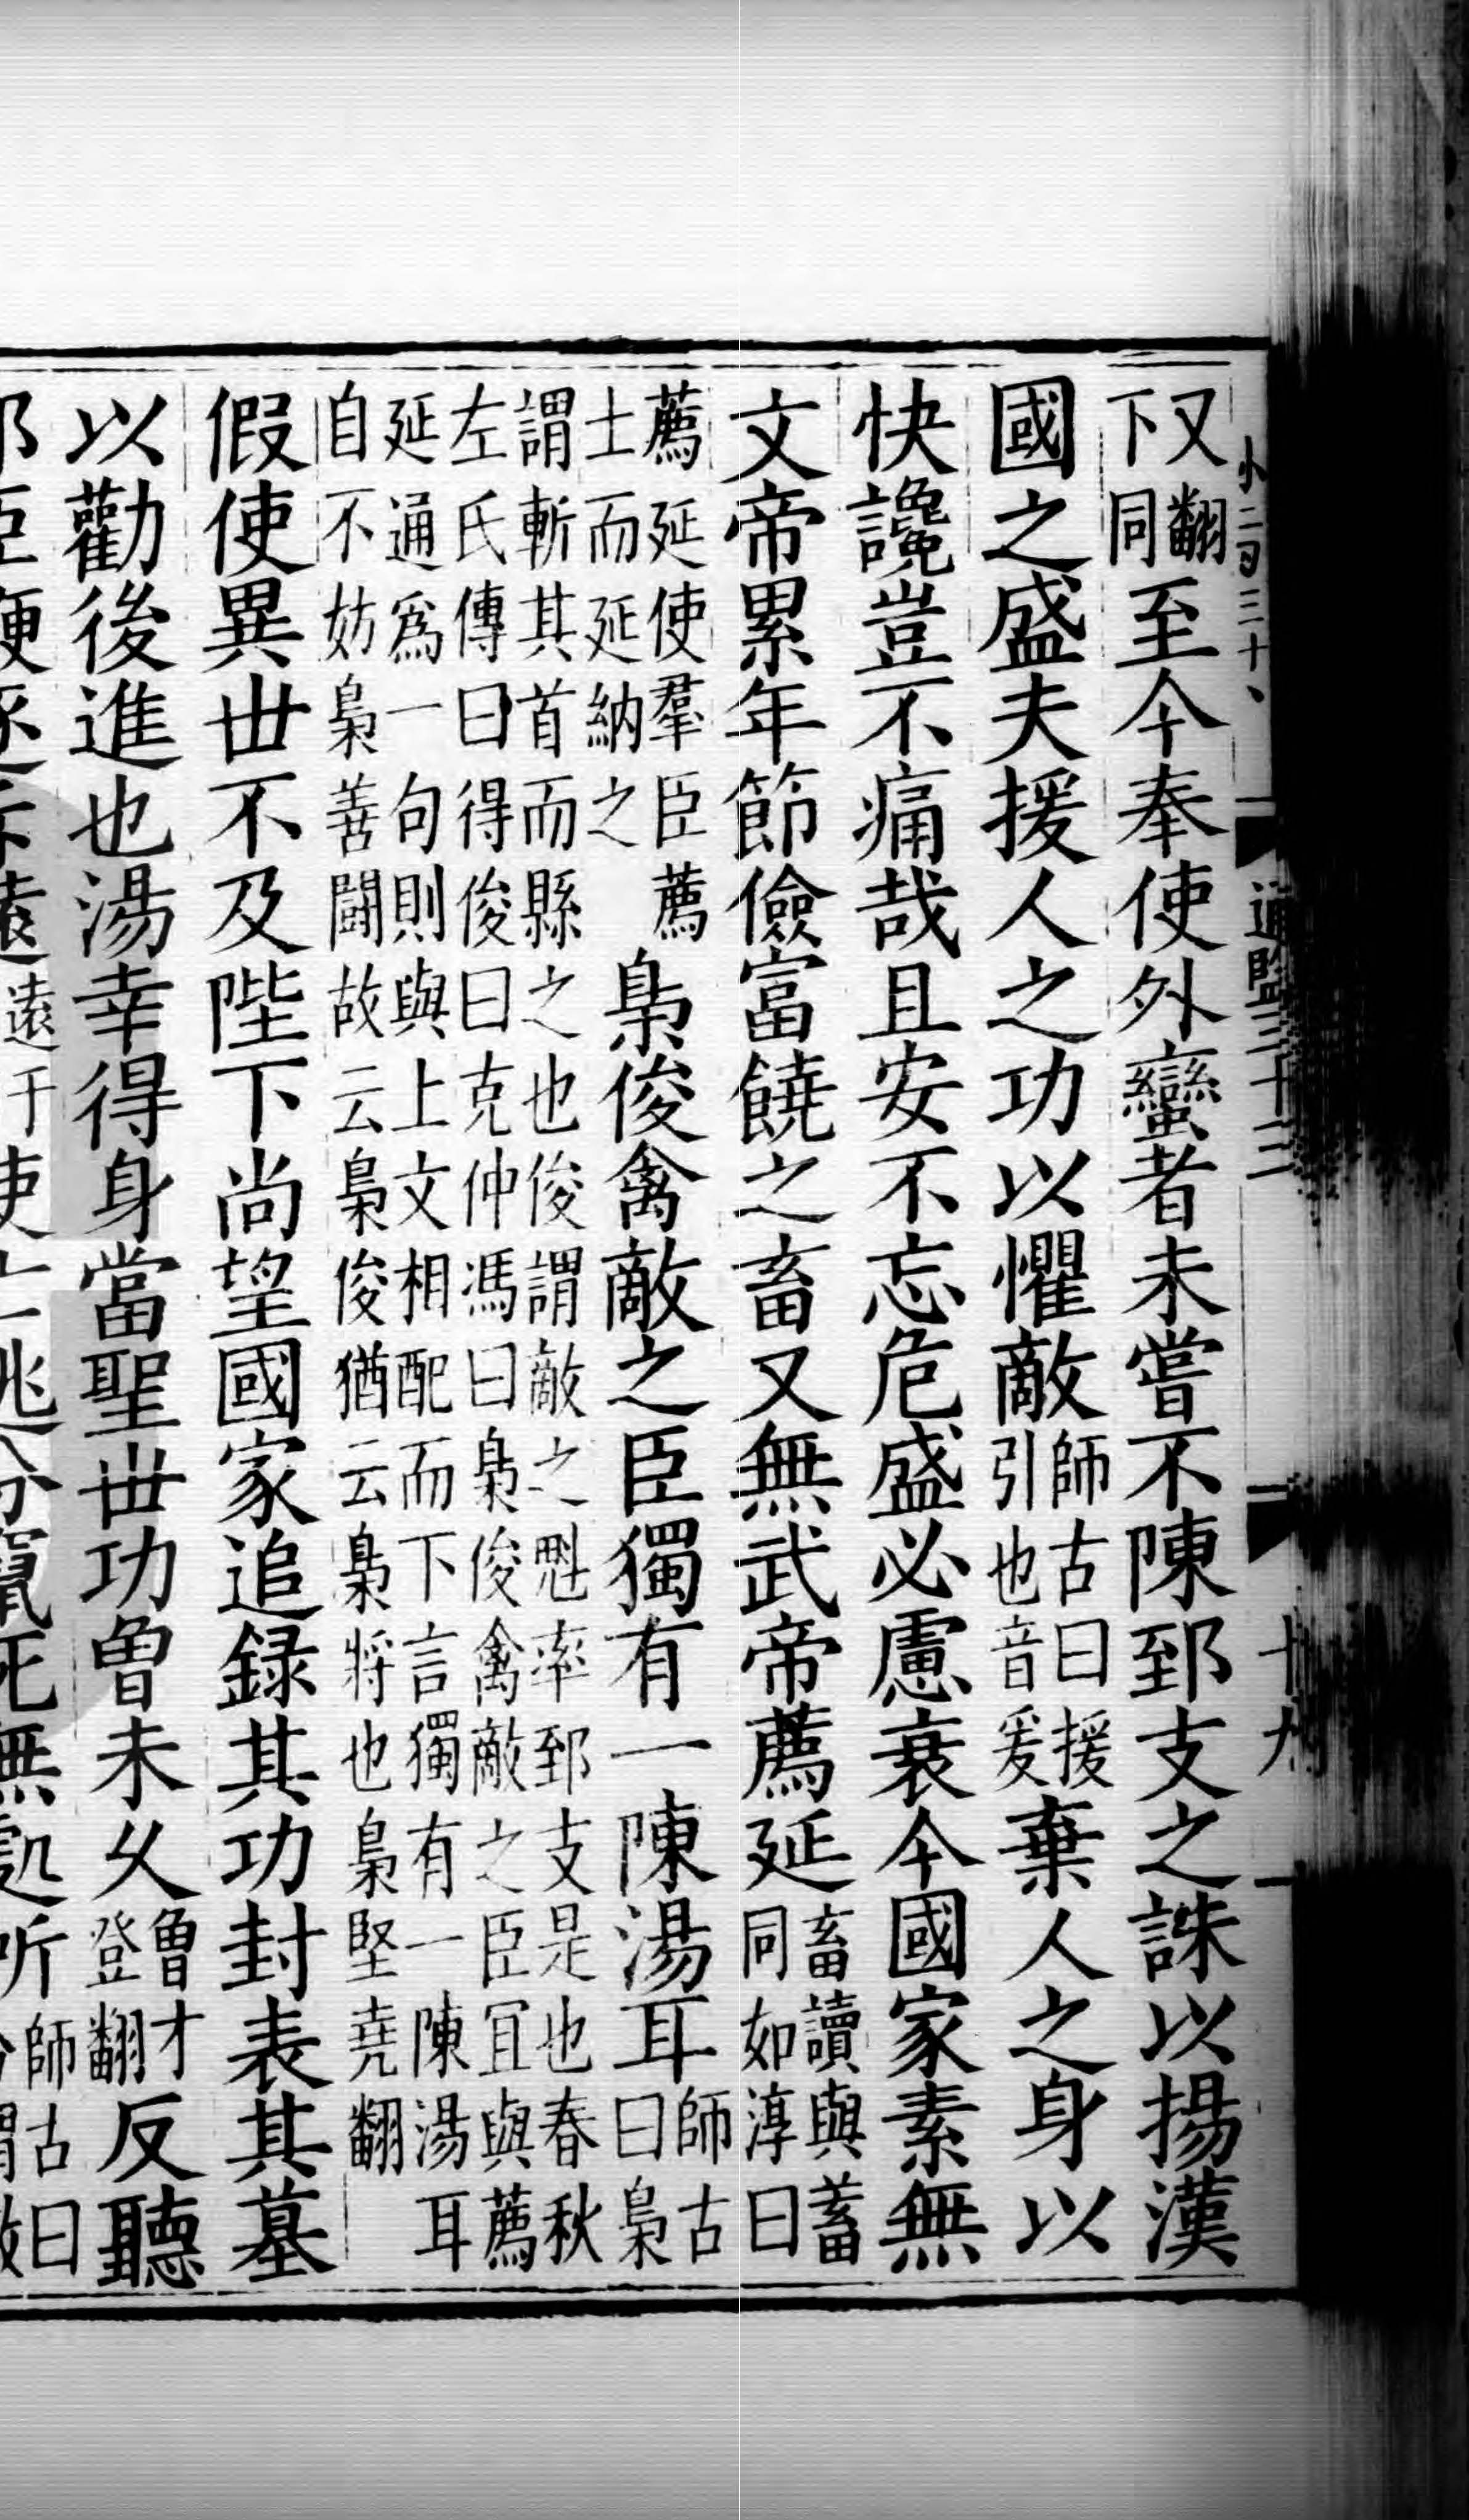 小二百三十
通鑑三十三
十九
又翻下同至今奉使外蠻者未嘗不陳郅支之誅以揚漢
國之盛夫援人之功以懼敵師古曰援引也音爰棄人之身以
快讒豈不痛哉且安不忘危盛必慮衰今國家素無
文帝累年節儉富饒之畜又無武帝薦延畜讀與蓄同如淳曰
薦延使羣臣薦士而延納之梟俊禽敵之臣獨有一陳湯耳師古曰梟
謂斬其首而縣之也俊謂敵之魁率郅支是也春秋左氏傳曰得俊曰克仲馮曰梟俊禽敵之臣宜與薦
延通爲一句則與上文相配而下言獨有一陳湯耳自不妨梟善鬬故云梟俊猶云梟將也梟堅堯翻
假使異世不及陛下尚望國家追録其功封表其墓
以勸後進也湯幸得身當聖世功曾未久曾才登翻反聽